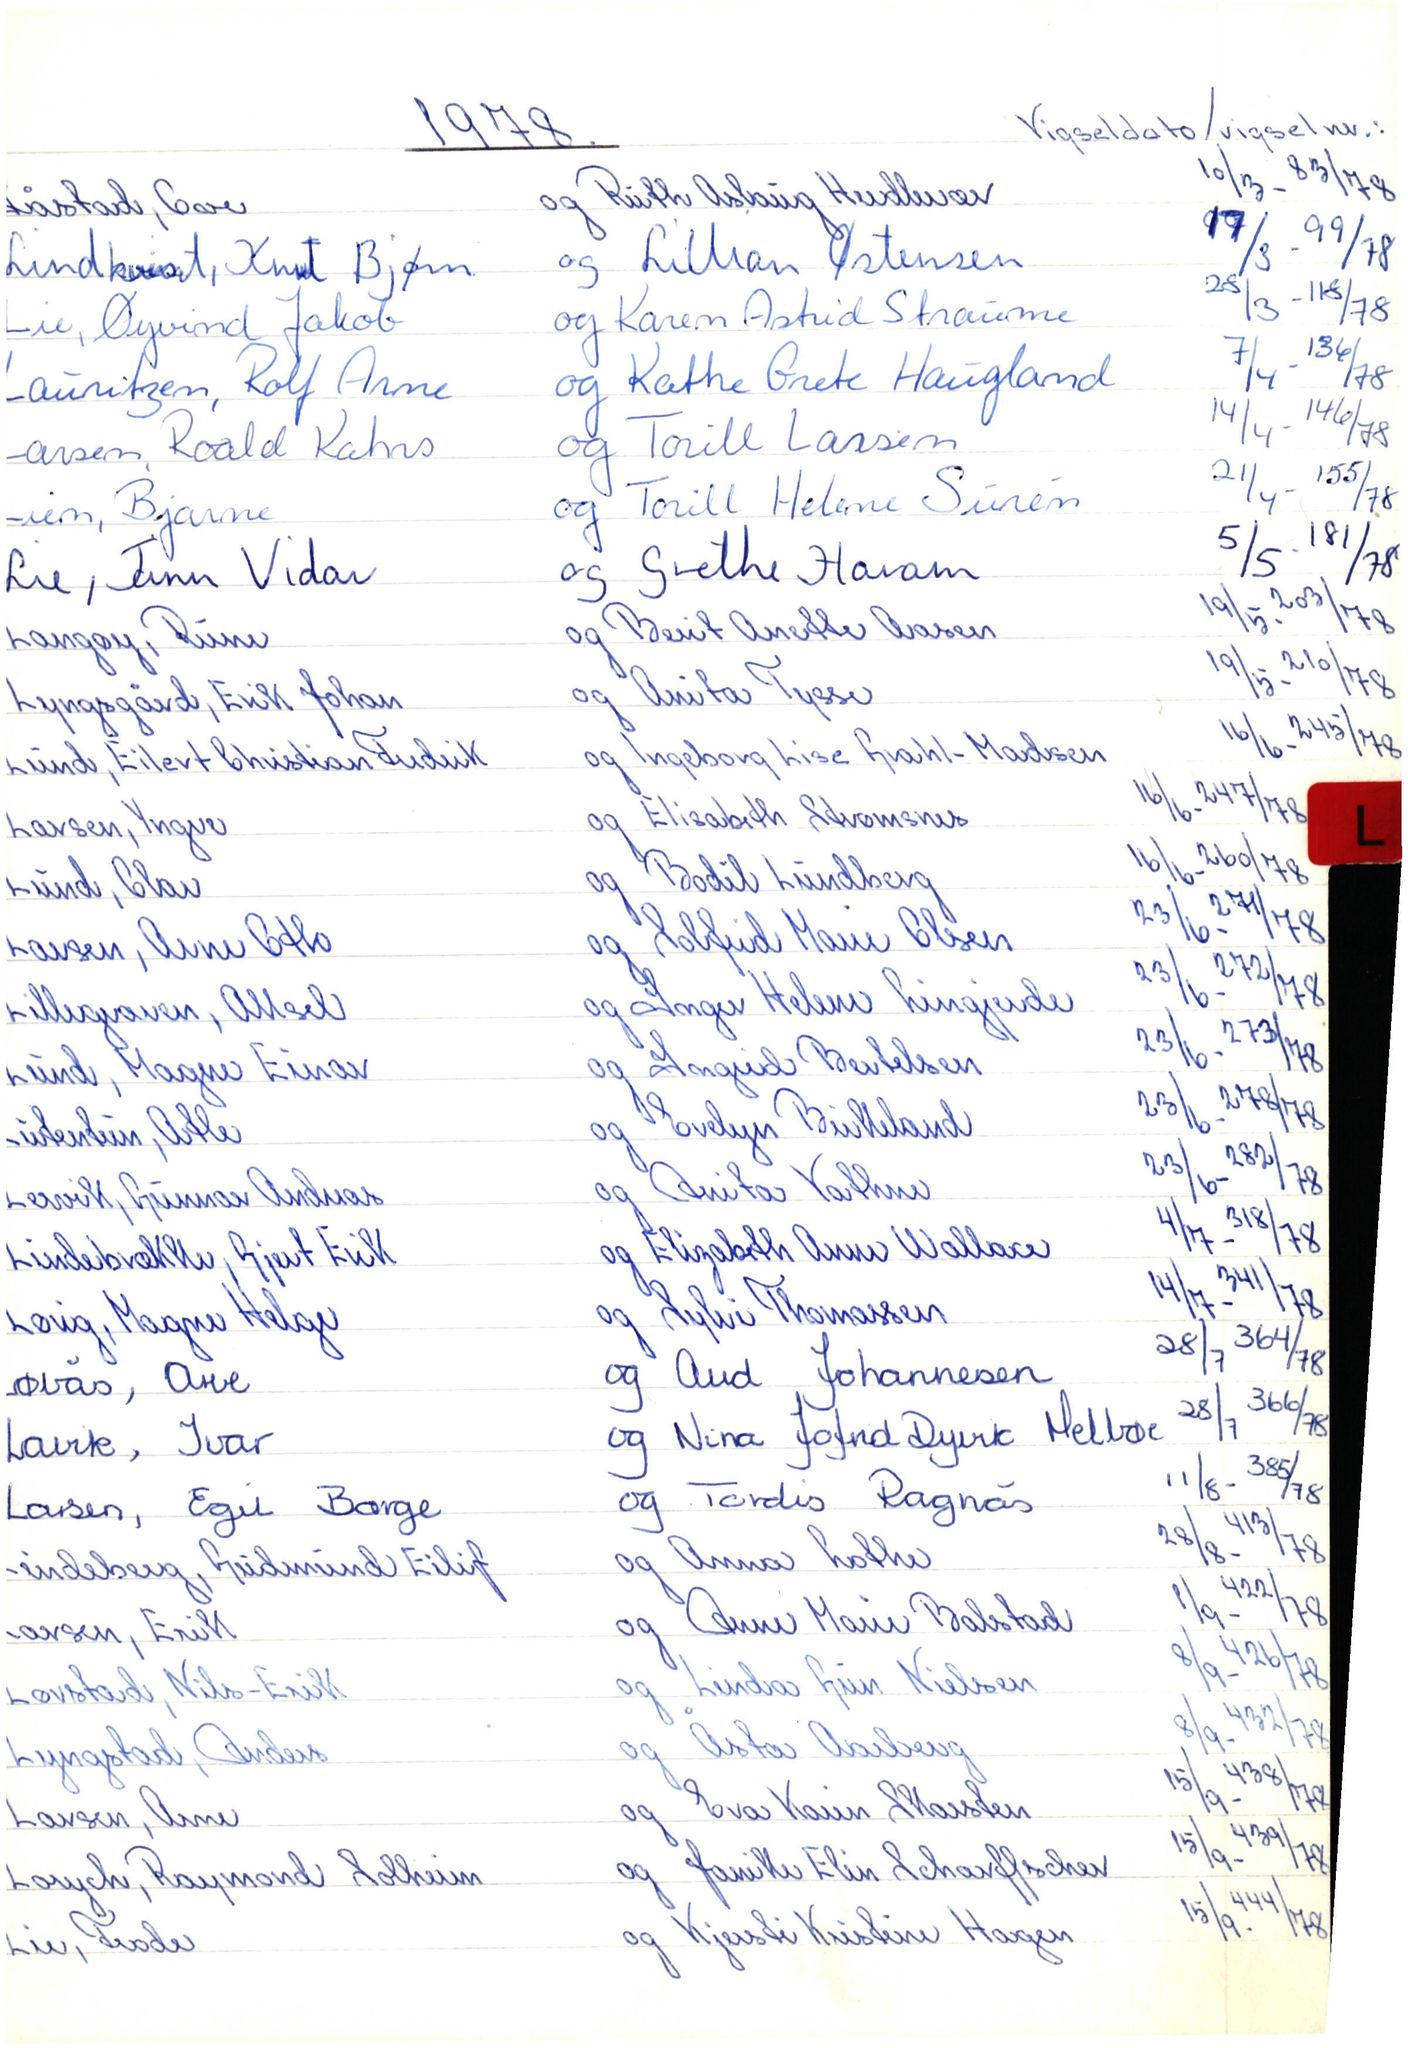 1978.
Vigseldato/vigsel nr.:
og Ruth Aslaug 10/3 - 83/78
Lindkvist, Knut Bjørn og Lillian Østensen 17/3 - 99/78
Lie, Øyvind Jakob og Karen Astrid Straume 28/3 - 118/78
Lauritzen, Rolf Arne og Kathe Grete Haugland 7/4 - 136/78
Larsen, Roald Kahrs og Torill Larsen 14/4 - 146/78
Lien, Bjarne og Torill Helene Surén 21/4 - 155/78
Lie, Finn Vidar og Grethe Haram 5/5 - 181/78
Langøy, Rune og Berit Anethe Aasen 19/5 - 203/78
Lyngsgård, Erik Johan og Anita Tysse 19/5 - 210/78
Lund, Eilert Christian Fredrik og Ingeborg Lise Grahl-Madsen 16/6 - 245/78
Larsen, Yngve og Elisabeth Strømsnes 16/6 - 247/78
L
Lund, Olav og Bodil Lundberg 16/6 - 260/78
Larsen, Arne Otto og Solfrid Marie Olsen 23/6 - 271/78
Lillegraven, Aksel og Inger Helene Lingjerde 23/6 - 272/78
Lund, Magne Einar og Ingrid Bertelsen 23/6 - 273/78
Atle og Evelyn Birkeland 23/6 - 278/78
Lervik, Gunnar Andreas og Anita Vathne 23/6 - 282/78
Lindebrække, Gjert Erik og Elizabeth Anne Wallace 4/7 - 318/78
Magne Helge og Sylvi Thomassen 14/7 - 341/78
Løvås, Are og Aud Johannesen 28/7 364/78
Lavik, Ivar og Nina Jofrid Dyvik Melbøe 28/7 366/78
Larsen, Egil Børge og Tordis Ragnås 11/8 - 385/78
Lindeberg, Gudmund Eilif og Anna Lothe 28/8 - 413/78
Larsen, Erik og Anne Marie Bolstad 1/9 - 422/78
Løvstad, Nils-Erik og Linda Gun Nielsen 8/9 - 426/78
Lyngstad, Anders og Åsta Aarberg 8/9 - 432/78
Larsen, Arne og Eva Karin Skarsten 15/9 - 438/78
Raymond Solheim og Janike Elin Scharffscher 15/9 - 439/78
Lie, Frode og Kjersti Kristine Hagen 15/9 - 444/78